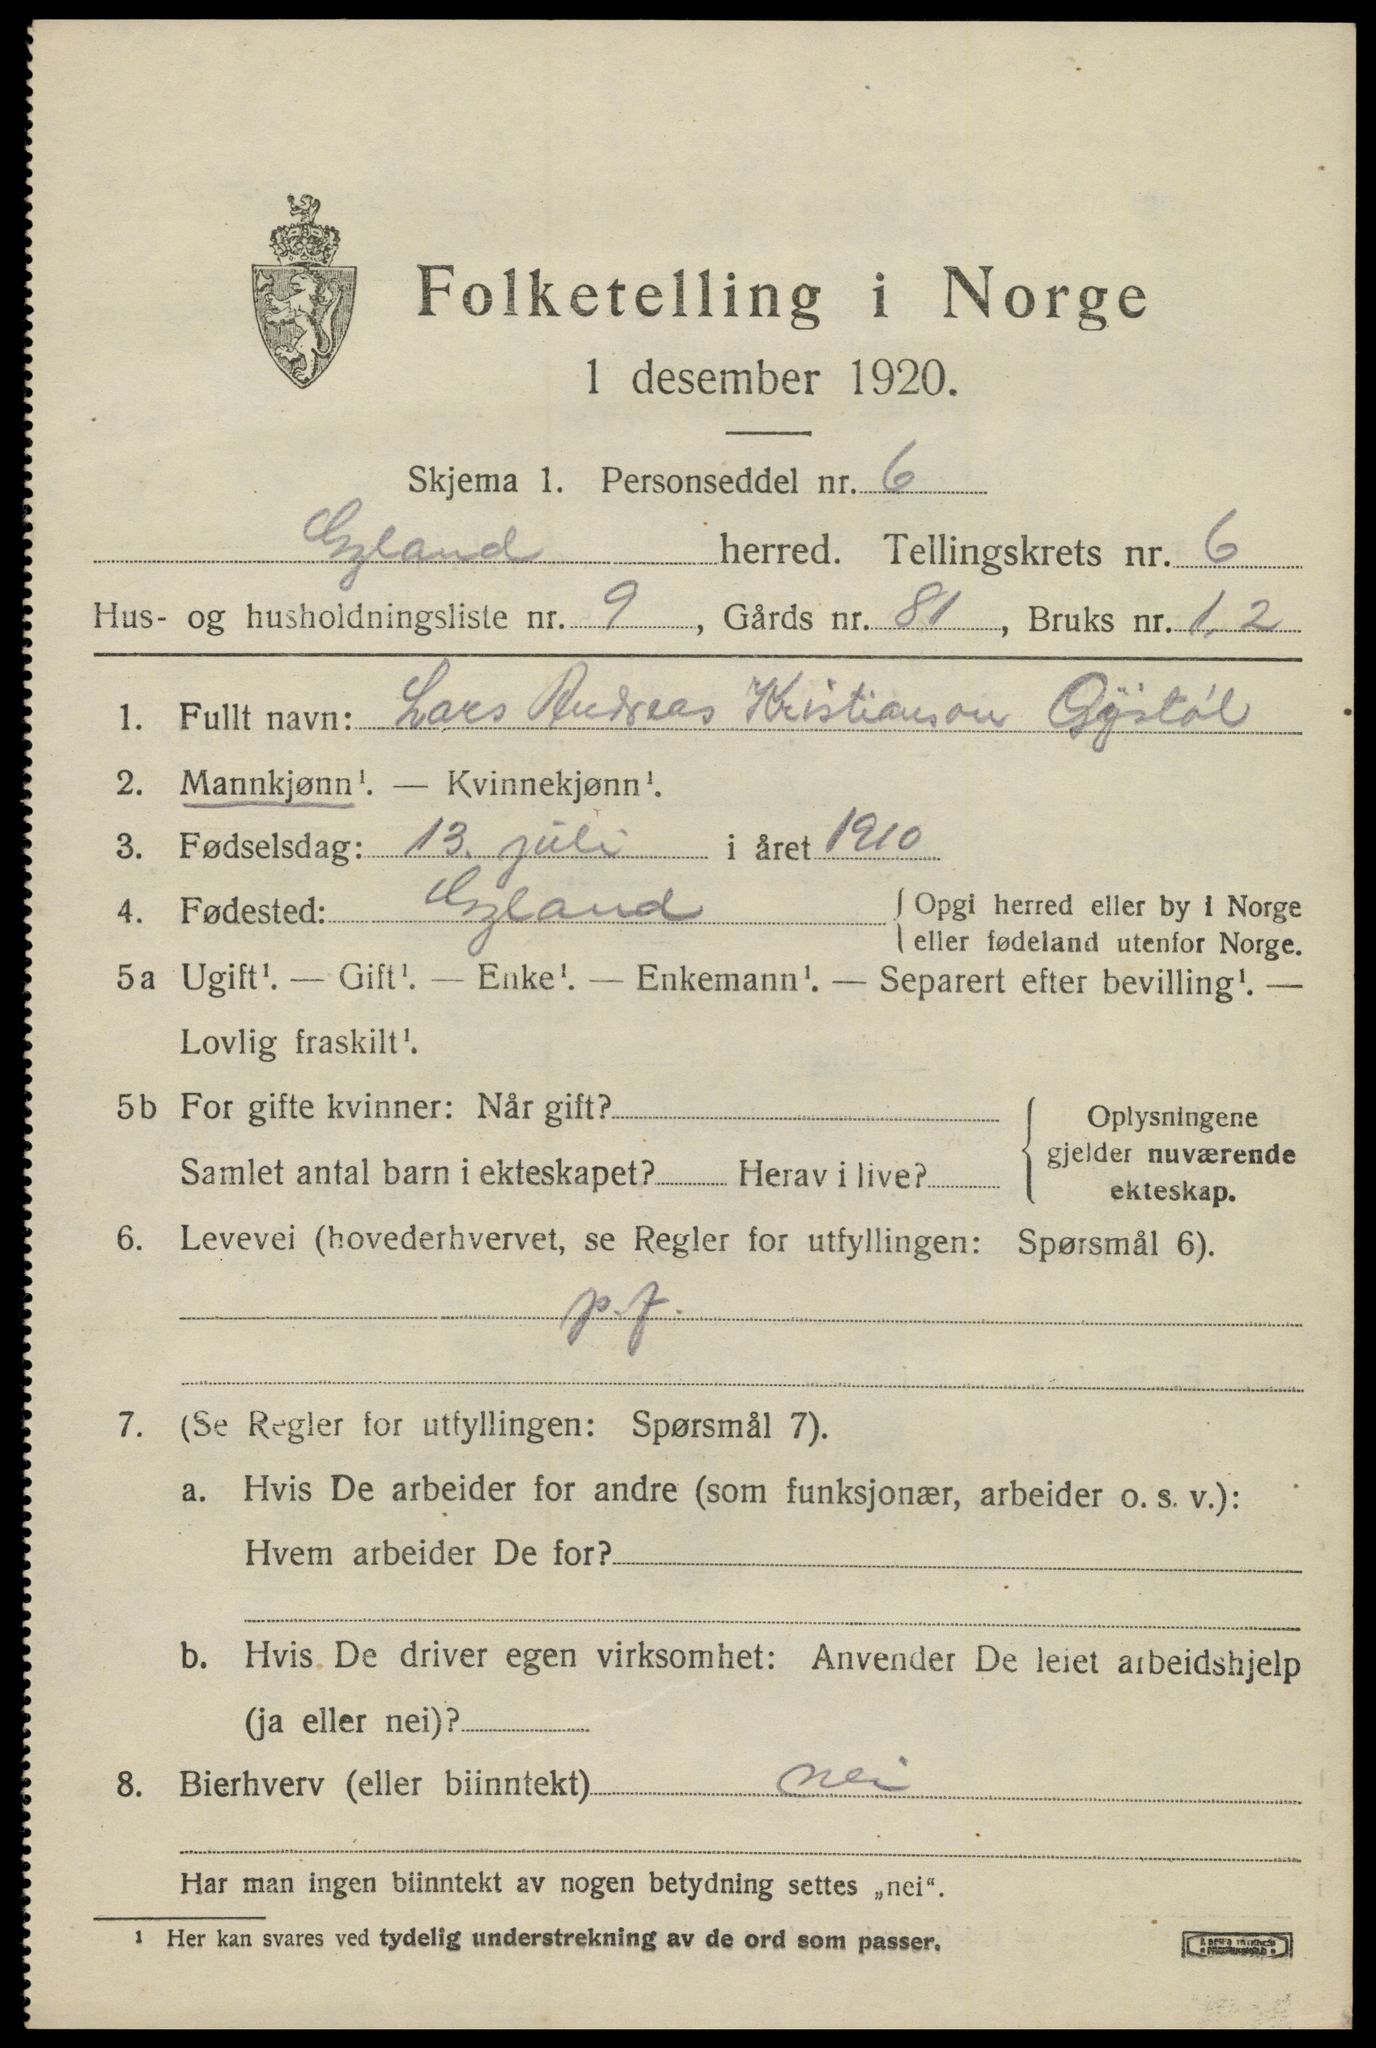 Folketelling i Norge
1 desember 1920.
Skjema 1. Personseddel nr. 6
Gyland herred. Tellingskrets nr. 6
Hus- og husholdningsliste nr. 9, Gårds nr. 81, Bruks nr. 1, 2
1. Fullt navn: Lars Andreas Kristianson Gystøl
2. Mannkjønn¹. — Kvinnekjønn¹.
3. Fødselsdag: 13. juli i året 1910
4. Fødested: Gyland { Opgi herred eller by i Norge
eller fødeland utenfor Norge.
5a Ugift¹. — Gift¹. — Enke¹. — Enkemann¹. — Separert efter bevilling¹. —
Lovlig fraskilt¹.
5b For gifte kvinner: Når gift?
Samlet antal barn i ekteskapet? Herav i live?
{ Oplysningene
gjelder nuværende
ekteskap.
6. Levevei (hovederhvervet, se Regler for utfyllingen: Spørsmål 6).
p.f.
7. (Se Regler for utfyllingen: Spørsmål 7).
a. Hvis De arbeider for andre (som funksjonær, arbeider o. s. v.):
Hvem arbeider De for?
b. Hvis De driver egen virksomhet: Anvender De leiet arbeidshjelp
(ja eller nei)?
8. Bierhverv (eller biinntekt) nei
Har man ingen biinntekt av nogen betydning settes „nei“.
¹ Her kan svares ved tydelig understrekning av de ord som passer.